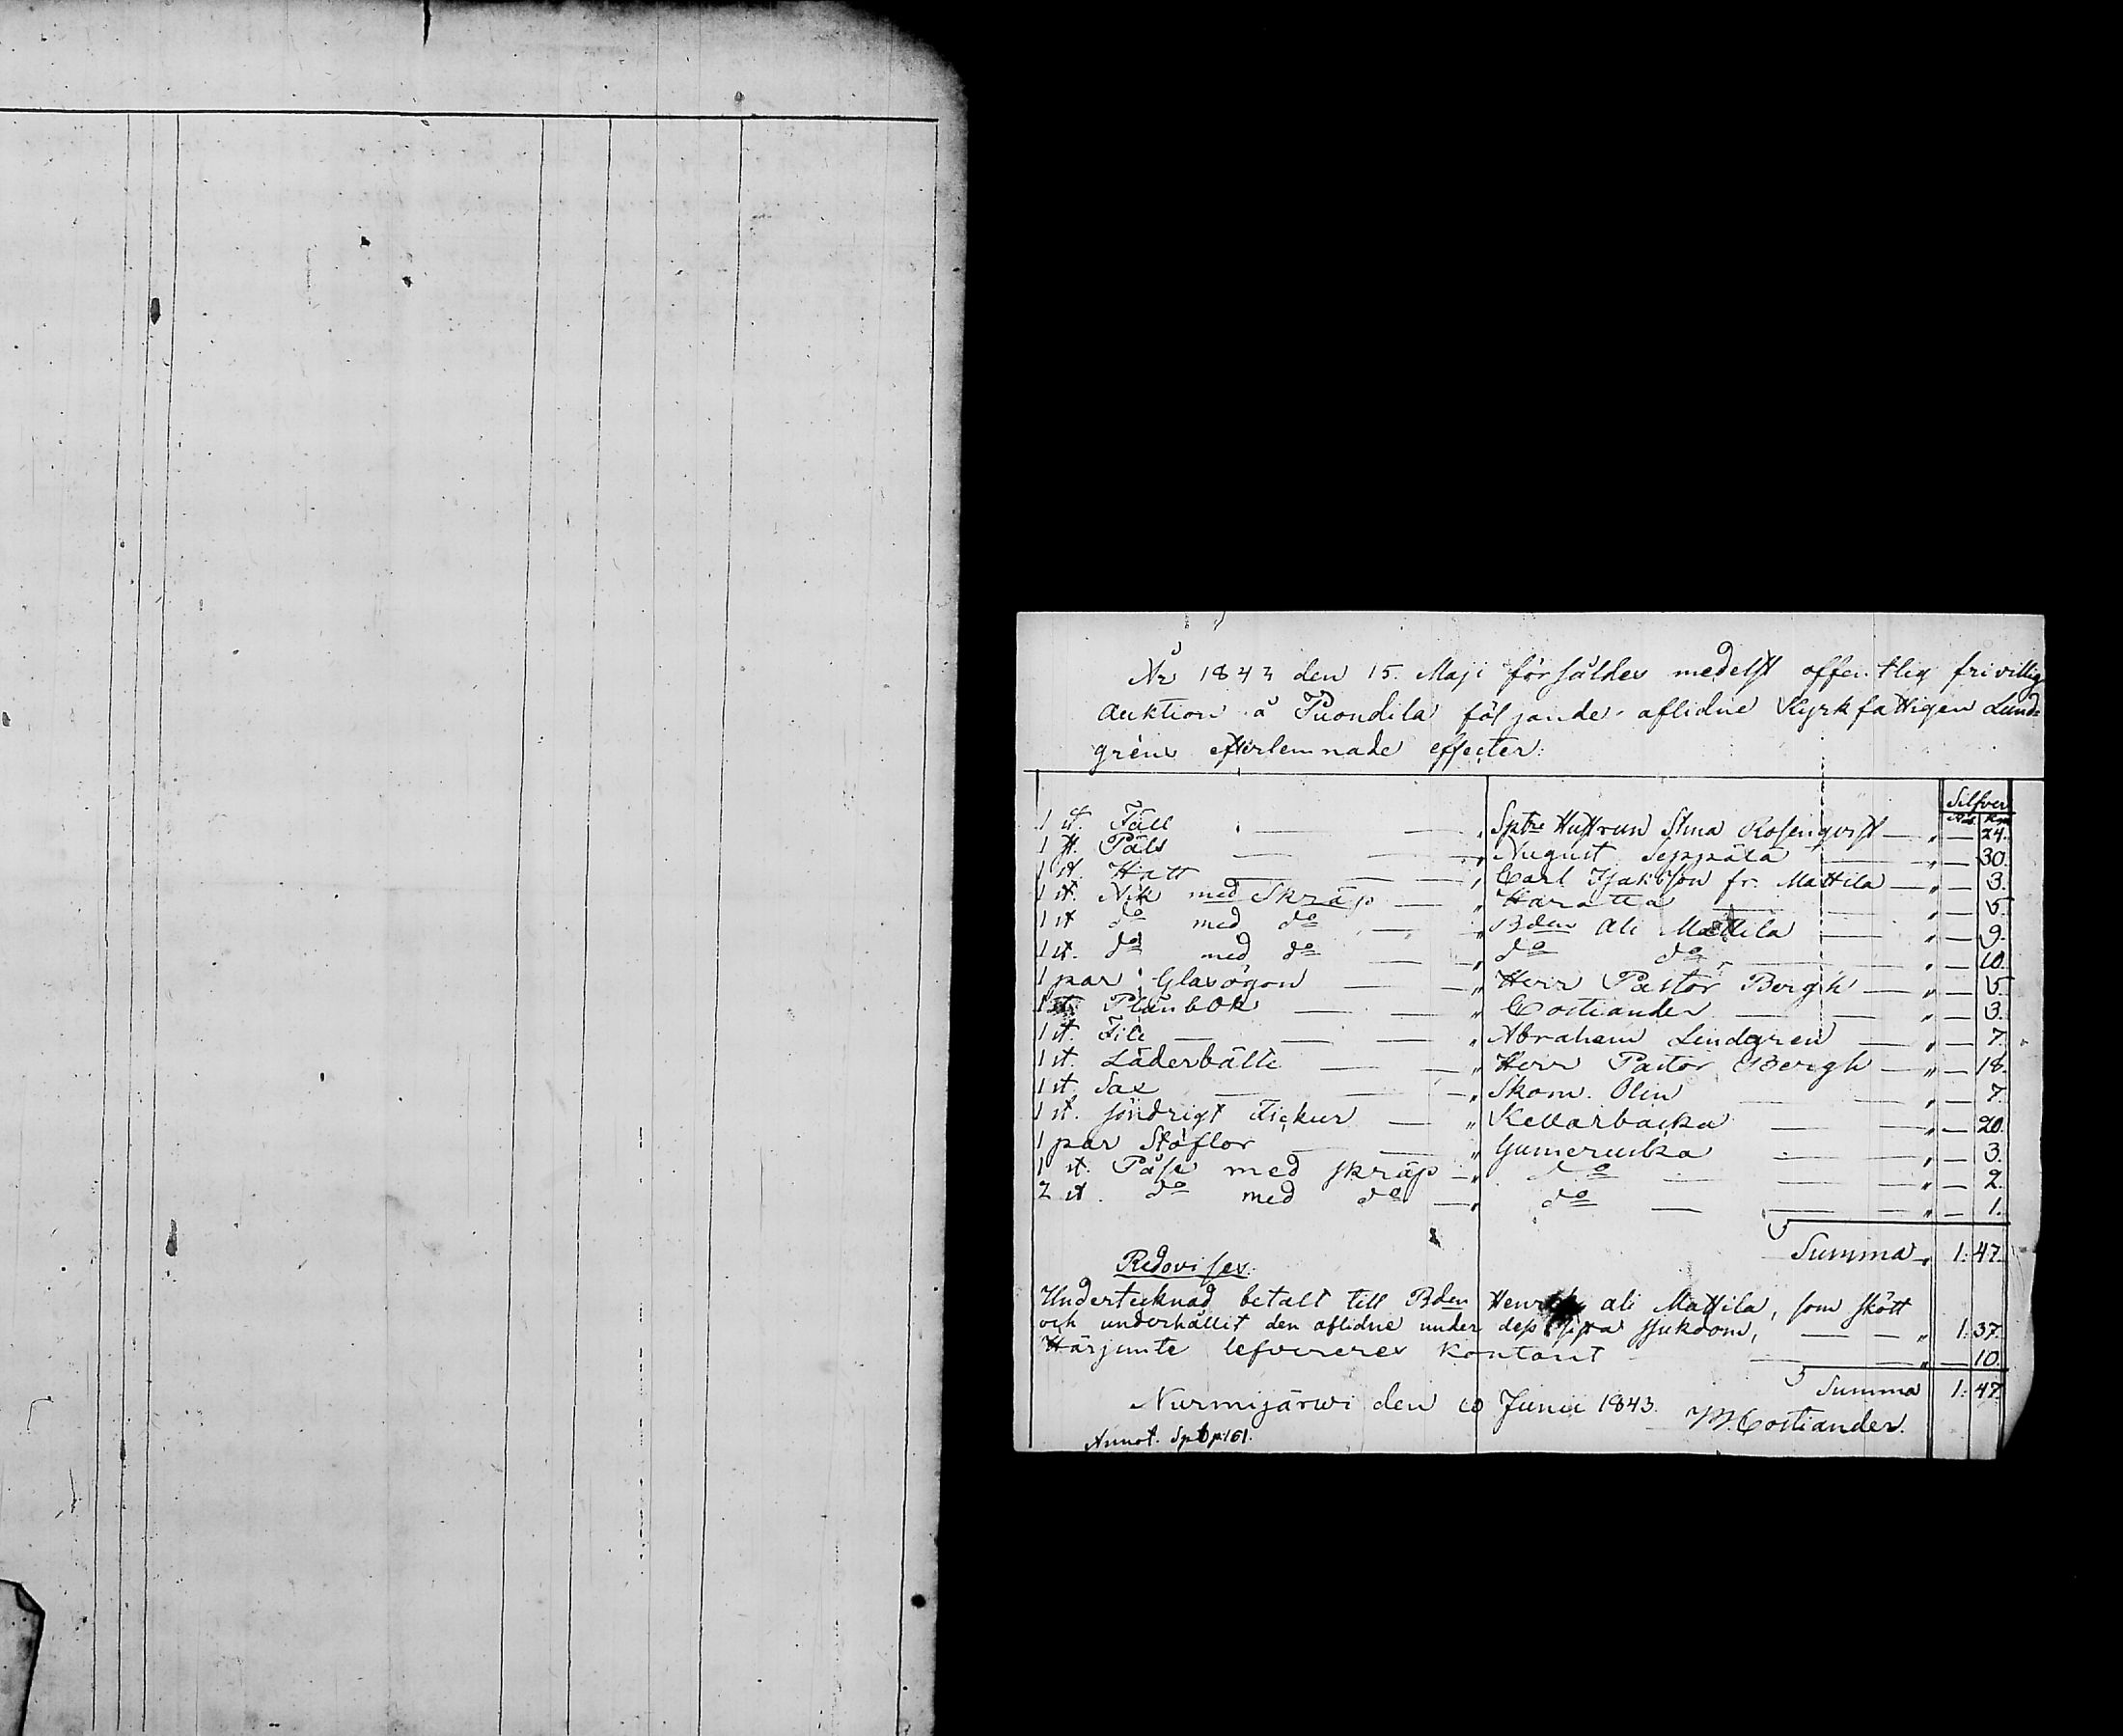 År 1843 den 15. Maji försåldes medelst offentlig frivillig
Auktion å Puondila följande aflidne Kyrkfattigen Lund=
gréns efterlemnade effecter:
Silfver
Rub. Kop.
1 st. Fäll — — " Sptn Hustrun Stina Rosenqvist — " — 24.
1 st. Päls — — " August Seppälä — " — 30.
1 st. Hatt — — " Carl Jjakobson fr. Mattila — " — 3.
1 st. Ask med Skräp — " Haratta — " — 5.
1 st do med do — " Bden Ali Mattila — " — 9.
1 st. do med do — " do do — " — 10.
1 par Glasögon — — " Herr Pastor Bergh — " — 5.
1 st. Plånbok — — " Costiander — — " — 3.
1 st. File — — — " Abraham Lindgren — " — 7.
1 st. Läderbälte — — " Herr Pastor Bergh — " — 18.
1 st. Sax — — " Skom. Olin — — " — 7.
1 st. söndrigt Fickur — " Kellarbacka — — " — 20.
1 par Stöflor — — " Gunerucka — — " — 3.
1 st. Påse med skräp — " do — — " — 2.
2 st. do med do — " do — — " — 1.
Summa " 1: 47.
Redovises:
Undertecknad betalt till Bden Henrik ali Mattila, som skött
och underhållit den aflidne under dess sista sjukdom, — — " 1: 37.
Härjemte lefvereres kontant — — " — 10.
Summa 1: 47.
Nurmijärwi den 10 Junii 1843. M. Costiander.
Annot. Sptb p 161.